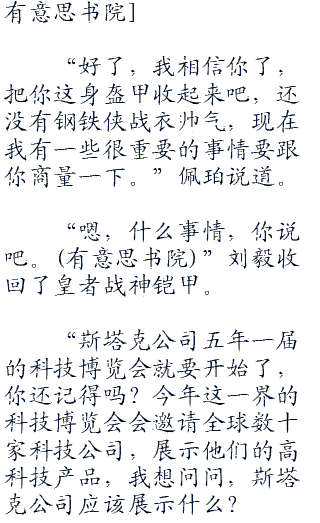 有意思书院]
“好了，我相信你了，
把你这身盔甲收起来吧，还
没有钢铁侠战衣帅气，现在
我有一些很重要的事情要跟
你商量一下。”佩珀说道。
“嗯，什么事情，你说
吧。(有意思书院)”刘毅收
回了皇者战神铠甲。
“斯塔克公司五年一届
的科技博览会就要开始了，
你还记得吗？今年这一界的
科技博览会会邀请全球数十
家科技公司，展示他们的高
科技产品，我想问问，斯塔
克公司应该展示什么？